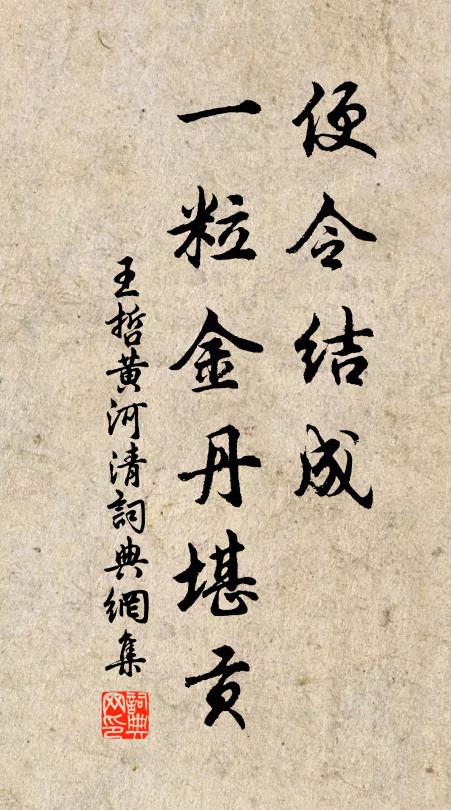 便令结成
一粒金丹堪贡
王哲黄河清詞典網集
詞典网印